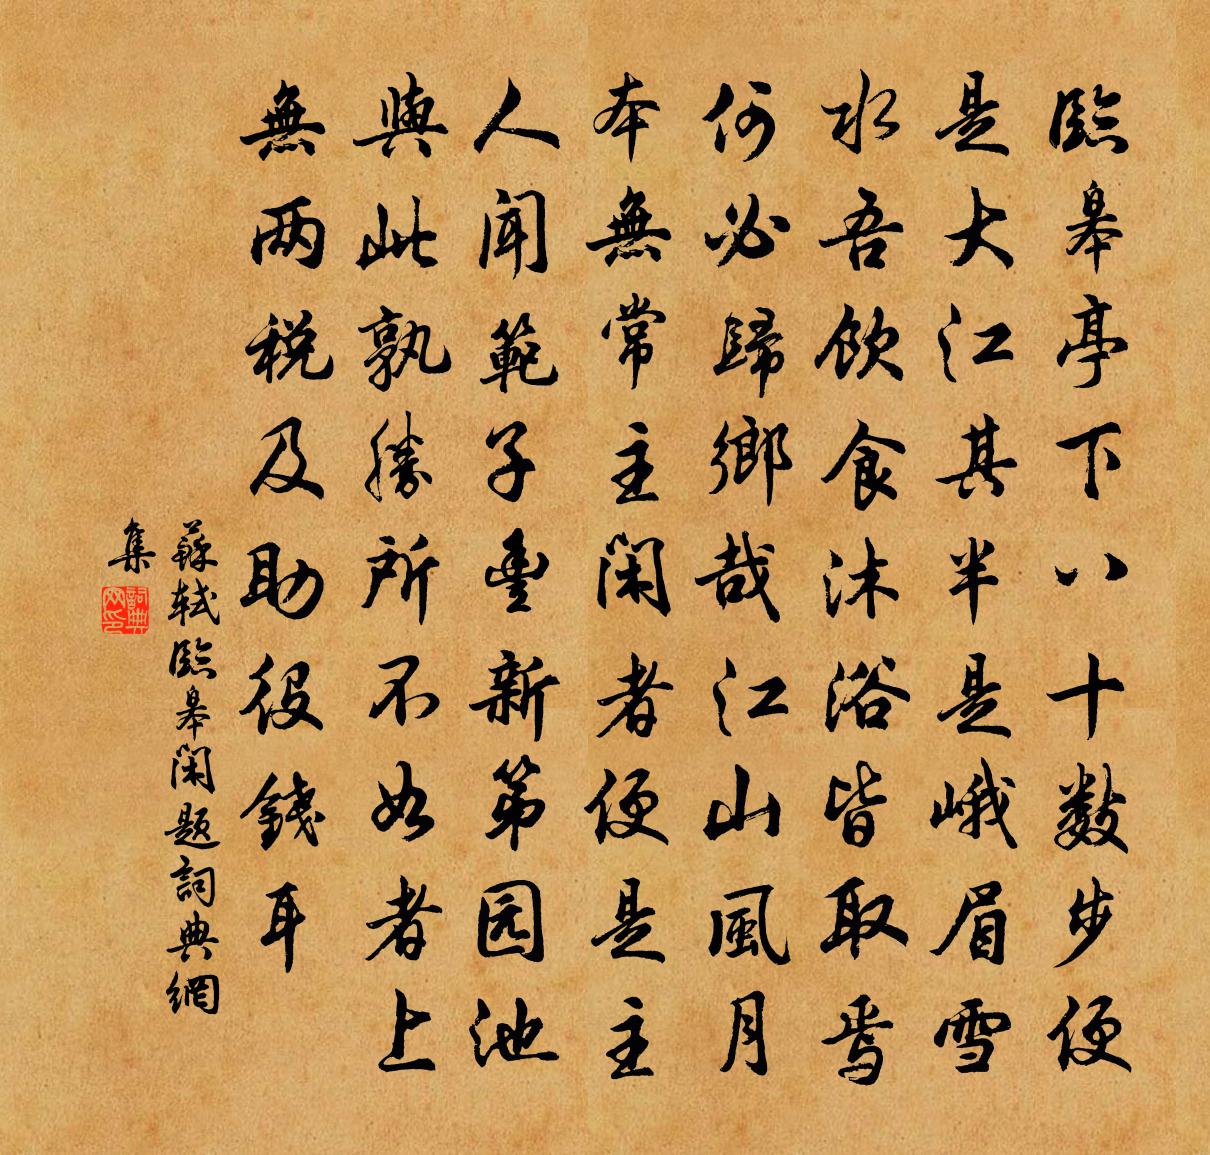 臨皋亭下八十數步便
是大江其半是峨眉雪
水吾飲食沐浴皆取焉
何必歸鄉哉江山風月
本無常主閑者便是主
人聞範子豐新第园池
與此孰勝所不如者上
無两税及助役錢耳
蘇軾臨皋閑題詞典網
集
詞典网印